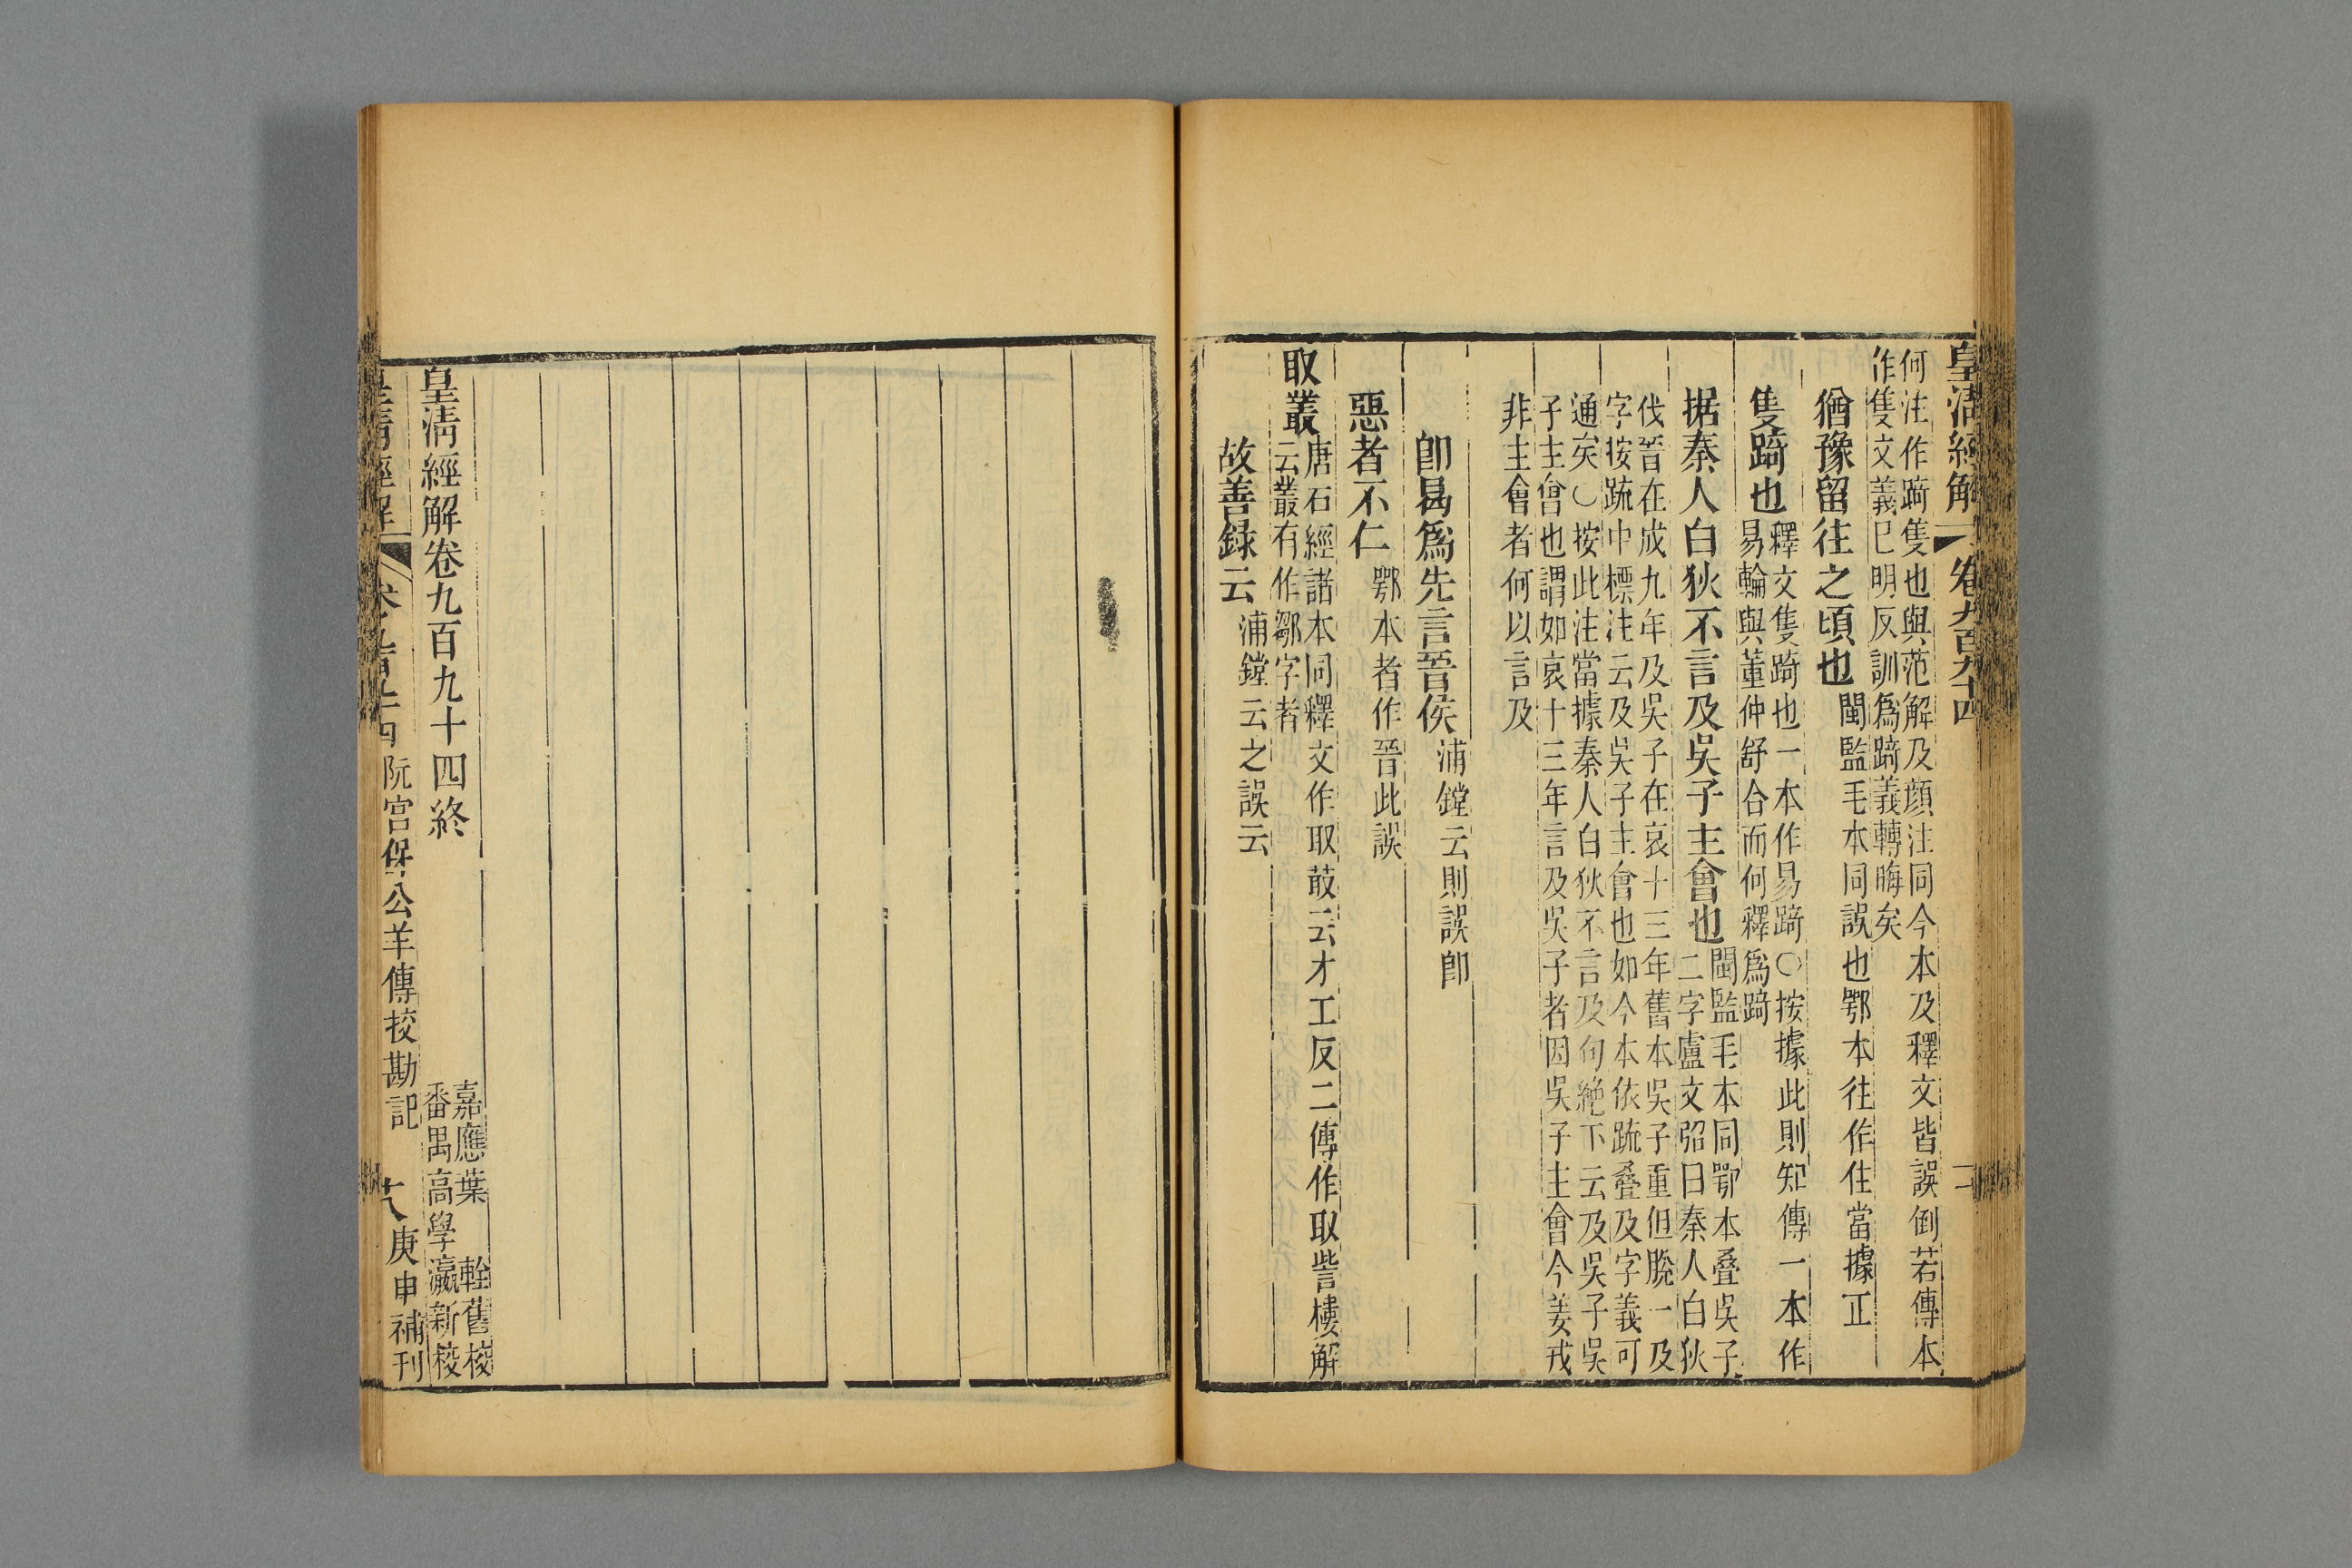 皇清經解 卷九百九十四
何注作踦隻也與范解及顔注同今本及釋文皆誤倒若傳本
作隻文義巳明反訓爲踦義轉晦矣
猶豫留往之頃也
閩監毛本同誤也鄂本往作住當據正
隻踦也
釋文隻踦也一本作易踦〇按據此則知傳一本作
易輪與董仲舒合而何釋爲踦
据秦人白狄不言及吳子主會也
閩監毛本同鄂本叠吳子
二字盧文弨曰秦人白狄
伐晉在成九年及吳子在哀十三年舊本吳子重但脫一及
字按䟽中標注云及吳子主會也如今本依䟽叠及字義可
通矣〇按此注當據秦人白狄不言及句絶下云及吳子吳
子主會也謂如哀十三年言及吳子者因吳子主會今姜戎
非主會者何以言及
卽曷爲先言晉侯
浦鏜云則誤卽
惡者不仁
鄂本者作晉此誤
取叢
唐石經諸本同釋文作取菆云才工反二傳作取訾樓解
云叢有作鄒字者
故善録云
浦鏜云之誤云
皇清經解卷九百九十四終
嘉應葉 輇舊校
番禺高學瀛新校
皇清經解 卷九百九十四 阮宮保公羊傳挍勘記 庚申補刊